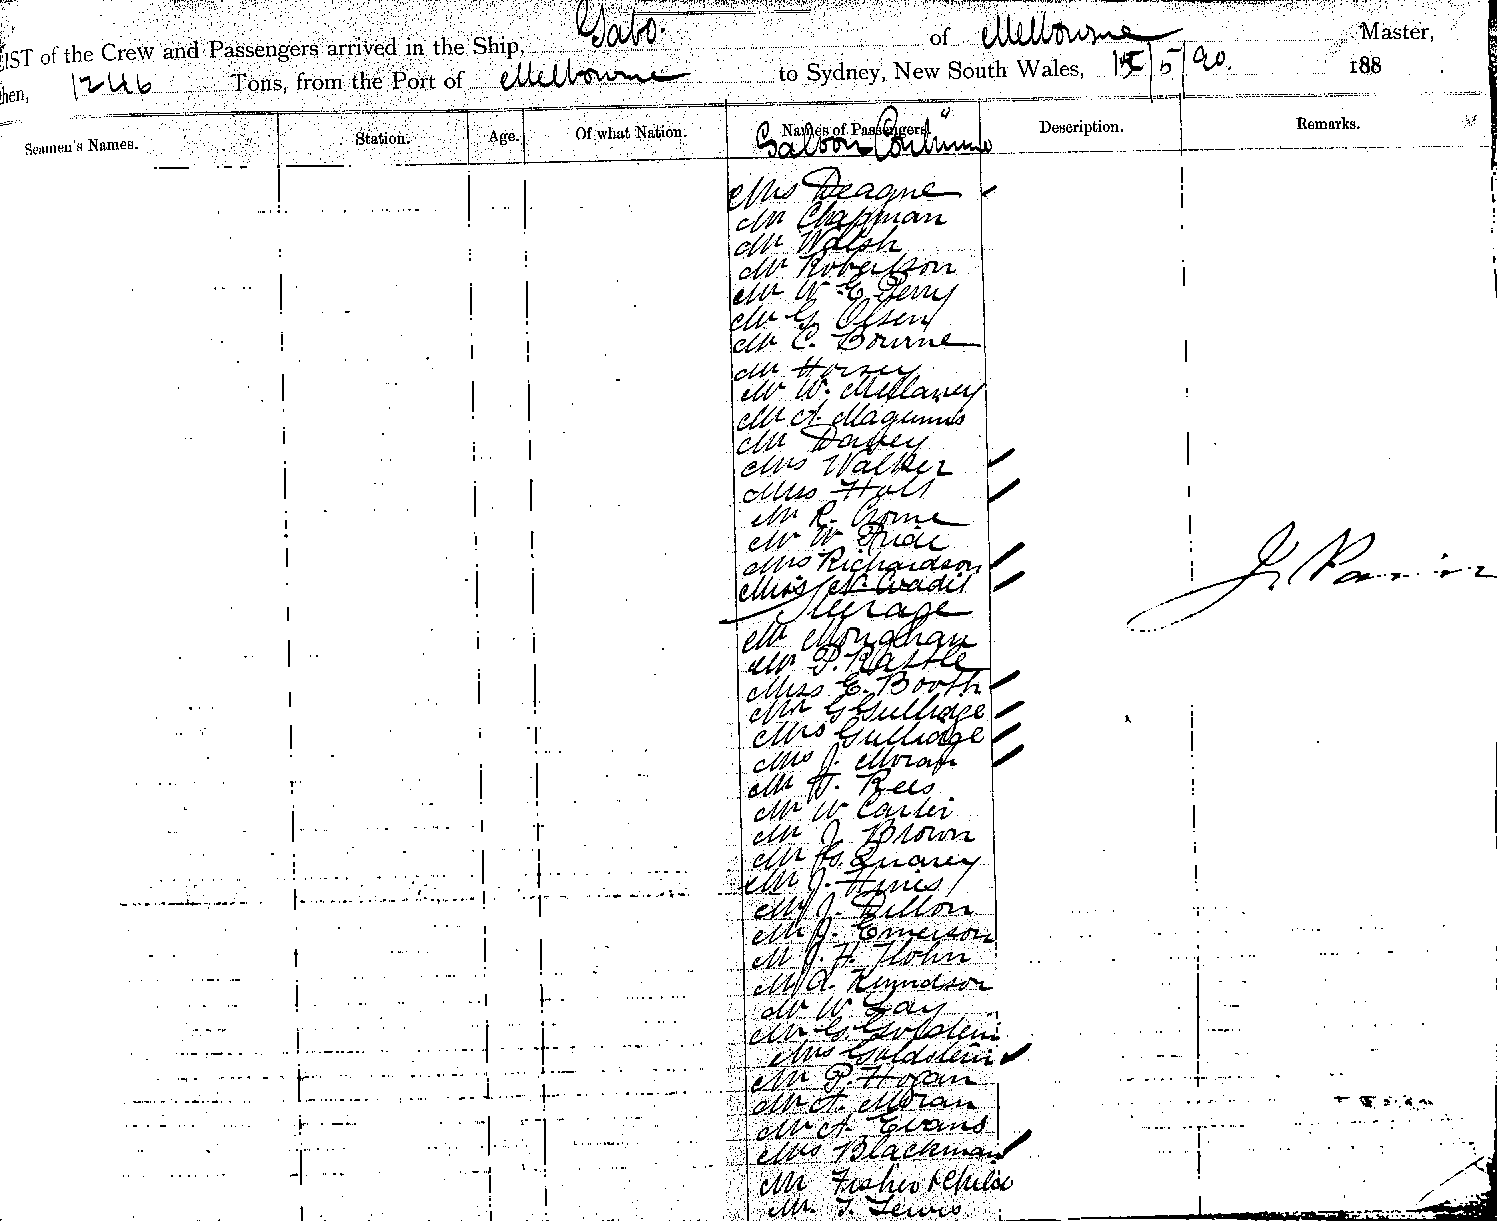 LIST of the Crew and Passengers arrived in the Ship, Gabo. of Melbourne Master,
hen, 1246 Tons, from the Port of Melbourne to Sydney, New South Wales, 15/5/90. 188
Seamen's Names. Station. Age. Of what Nation. Names of Passengers. Description. Remarks.
Saloon Continued
Mrs Deague
Mr Chapman
Mr Walsh
Mr Robertson
Mr W. E. Perry
Mr G Olsen
Mr C. Bourne
Mr Horsey
Mr W.
Mr A. Maguinis
Mr Davey
Mrs Walker
Miss Holt
Mr R. Crome
Mr W
Mrs Richardson
Miss N.
Steerage
Mr Monghan
Mr P. Rattle
Miss E. Booth
Mr G Gullidge
Mrs Gullidge
Mrs J. Moran
Mr J. Rees
Mr W Carter
Mr J Brown
Mr G.
Mr J. Hines
Mr J. Dillon
Mr J. Emerson
Mr J. H. Hohn
Mr A. Knundson
Mr W Gay
Mr G. Goldstein
Mrs Goldstein
Mr P. Hogan
Mr A. Moran
Mr A Evans
Mrs Blackman
Mr Fisher & Child
Mr. T. Lewis